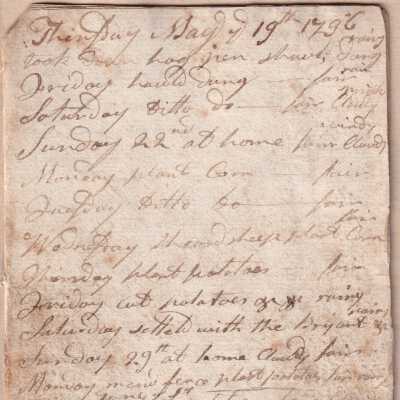 Thirsday May y 19th 1796 rainy
took down hog pen
Friday hauld Dung — fair
Saturday Ditto do — fair Cloudy
windy
Sunday 22nd at home fair Cloudy
Monday plant Corn — fair
Tuesday Ditto Do — fair
fair
Wednsday sheep plant Corn
Thirsday plant potatoes fair
Friday cut potatoes &c &c rainy
rainy
Saturday settled with the Bryant &c
Sunday 29th at home Cloudy fair
Monday mend fence plant potatoes